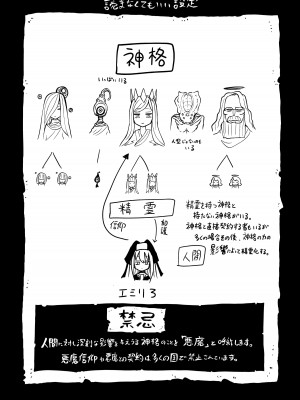 読まなくてもいい設定
神格
いっぱいいる
人型じゃないのもいる
精霊
信仰
加護
精霊を持つ神格と
持たない神格がいる。
神格と直接契約する者もいるが
多くの場合その後、神格の力の
影響によって精霊化する。
人間
エミリ3
禁忌
人間に対し深刻な影響を与えうる神格のことを「悪魔」と呼称します。
悪魔信仰や悪魔との契約は多くの国で禁止されています。